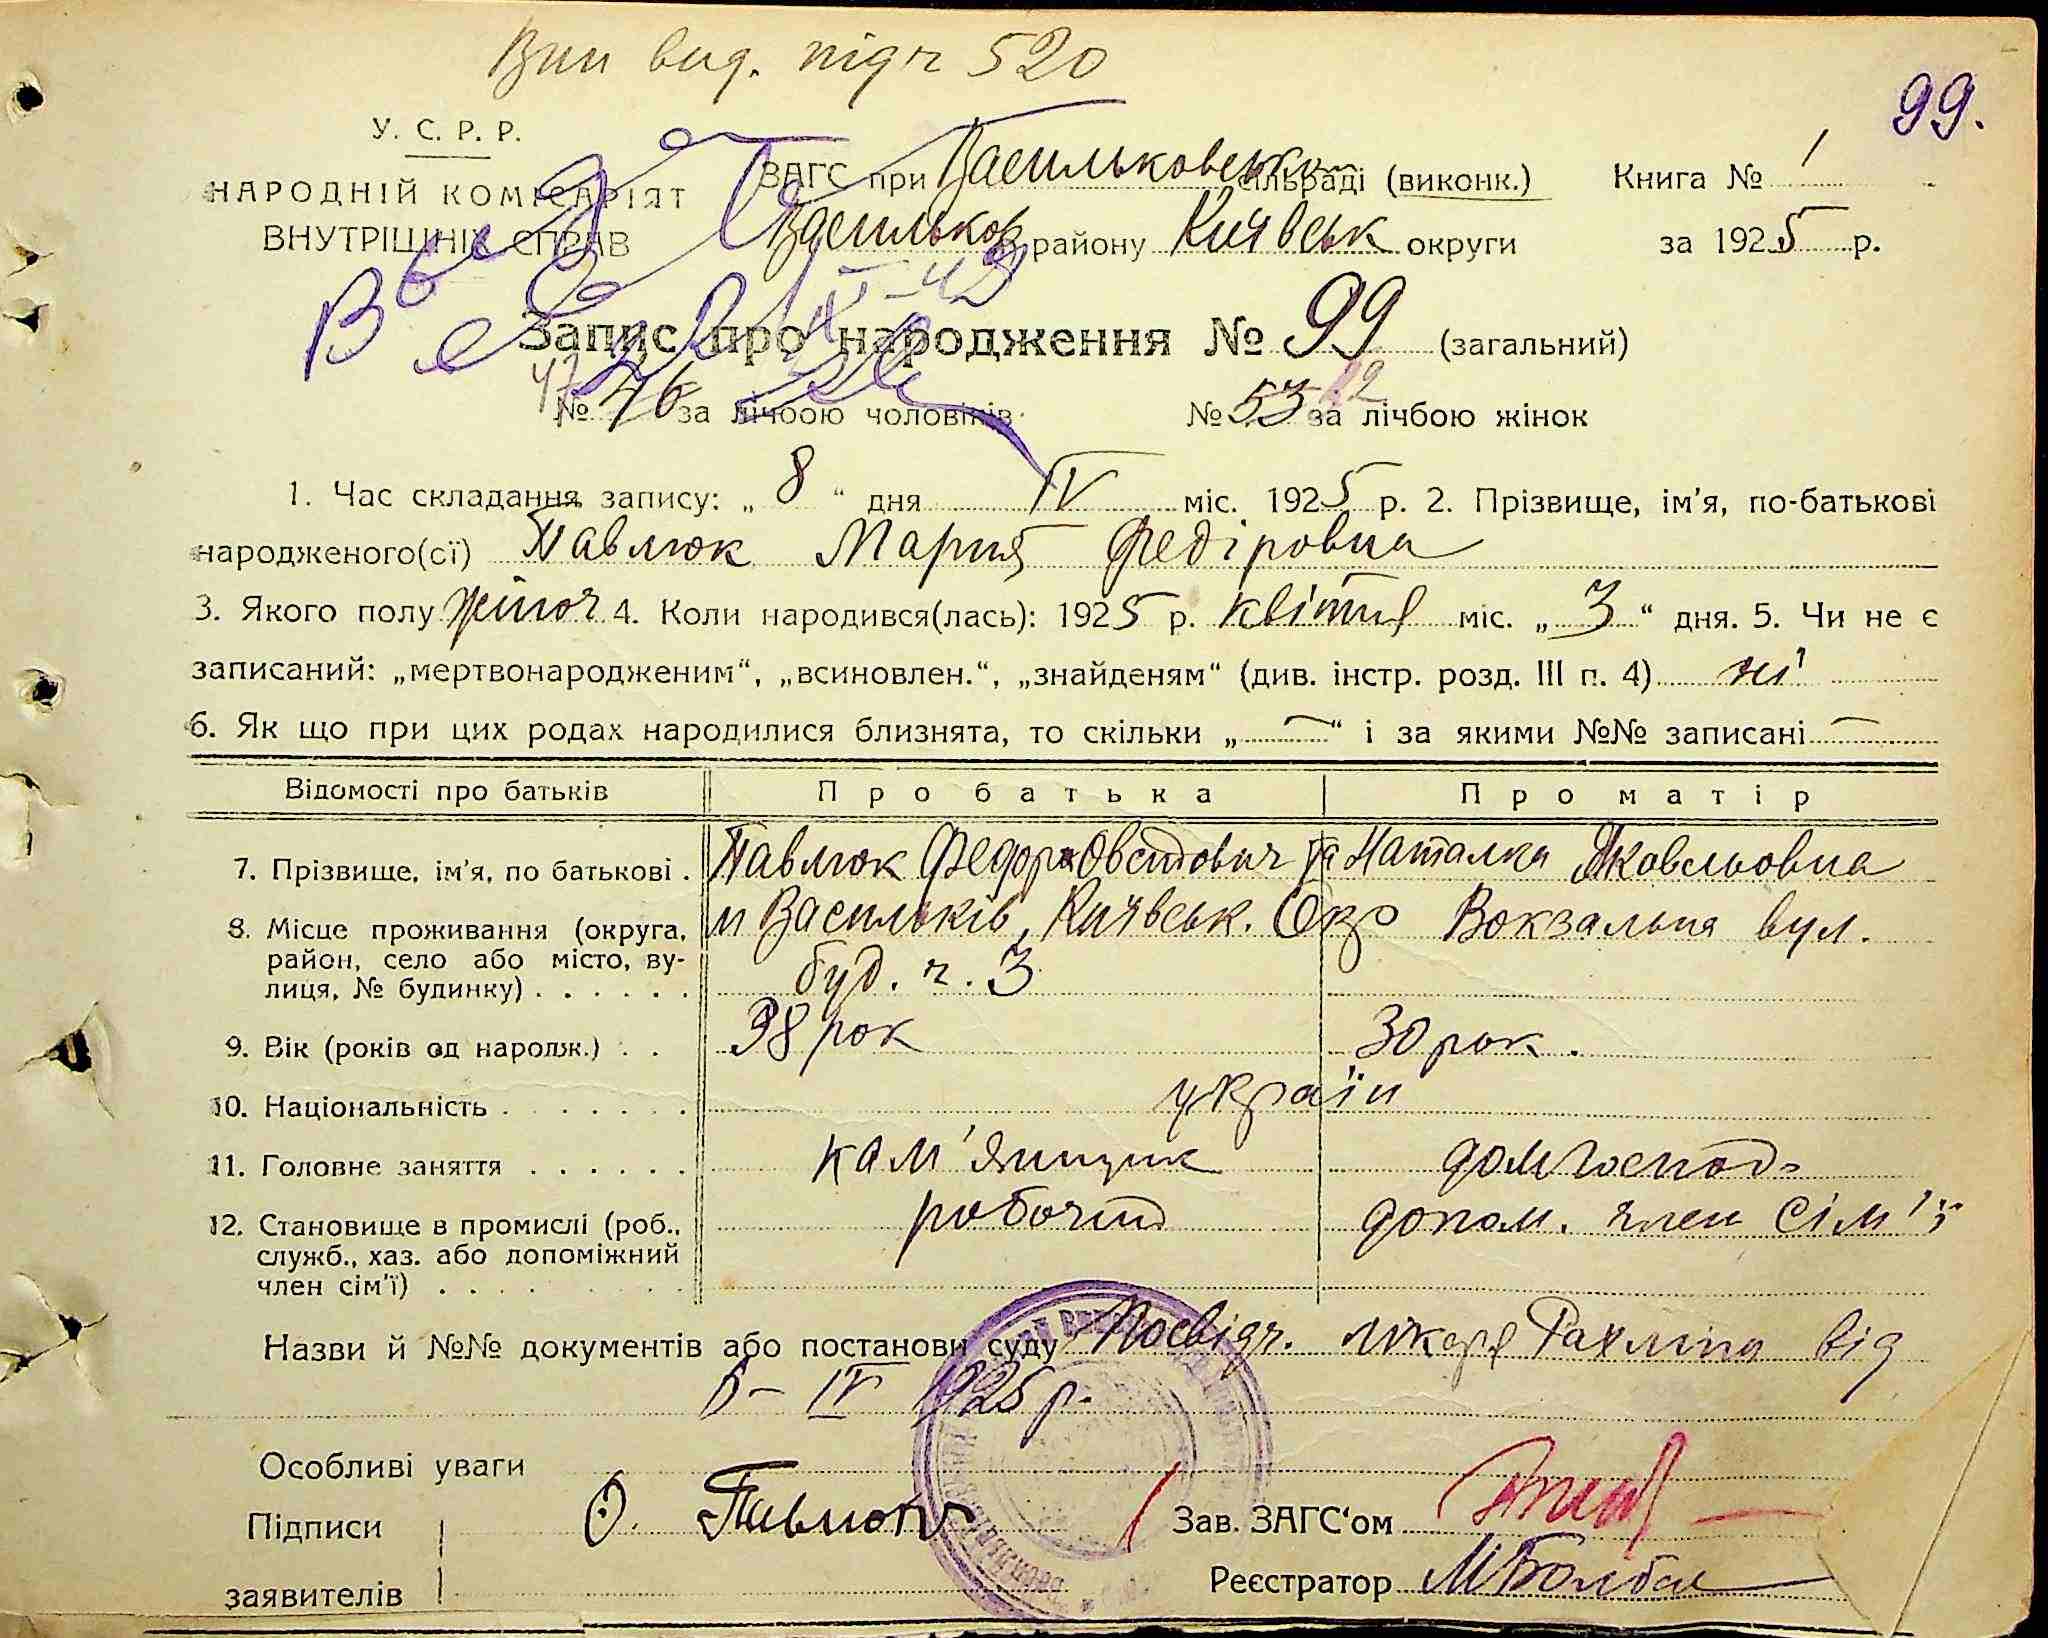 Вип вид. підч 520
99.
У. С. Р. Р.
НАРОДНІЙ КОМІСАРІЯТ
ВНУТРІШНІХ СПРАВ
ЗАГС при Васильковськ сільраді (виконк.) Книга № 1
Васильков району Київськ округи за 1925 р.
Запис про народження № 99 (загальний)
47
№ 46 за лічбою чоловіків № 53 за лічбою жінок
1. Час складання запису: „ 8 “ дня IV міс. 1925 р. 2. Прізвище, ім’я, по-батькові
народженого(сї) Павлюк Мария Федіровна
3. Якого полу жіноч 4. Коли народився(лась): 1925 р. квітня міс. „ 3 “ дня. 5. Чи не є
записаний: „мертвонародженим“, „всиновлен.“, „знайденям“ (див. інстр. розд. III п. 4) ні
6. Як що при цих родах народилися близнята, то скільки „ — “ і за якими №№ записані —
Відомості про батьків Про батька Про матір
7. Прізвище, ім’я, по батькові . Павлюк Федор Овсійович та Наталка Яковльовна
8. Місце проживання (округа, м Васильків, Київськ. Окр Вокзальна вул.
район, село або місто, ву- буд. ч. 3
лиця, № будинку) . . . . . .
9. Вік (років од народж.) . . 38 рок 30 рок.
10. Національність . . . . . . . україн
11. Головне заняття . . . . . . кам’янщик дом господ
12. Становище в промислі (роб., робочий допом. член сім’ї
служб., хаз. або допоміжний
член сім’ї) . . . . . . . . .
Назви й №№ документів або постанови суду Посвідч. лікаря Рахліна від
6- IV 1925 р.
Особливі уваги
Підписи Зав. ЗАГС‘ом
заявителів Реєстратор